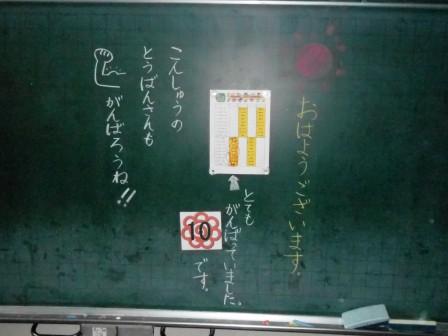 おはようございます。
とても
がんばっていました。
10
です。
こんしゅうの
とうばんさんも
がんばろうね!!